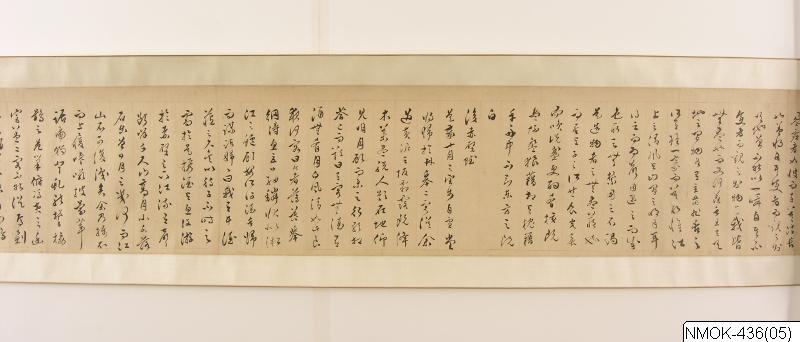 盈虛者如彼而卒莫消長
也蓋將自其變者而觀之則
天地曾不能以一瞬自其不
變者而觀之則物與我皆
無盡也而又何羨乎且夫天
地之間物各有主苟非吾之
所有雖一毫而莫取惟江
上之清風與山間之明月耳
得之而為聲目遇之而成
色取之無禁用之不竭
是造物者之無盡藏也
而吾與子之所共食客喜
而笑洗盞更酌肴核既
盡杯盤狼籍相與枕藉
乎舟中不知東方之既
白
後赤壁賦
是歲十月之望步自雪堂
將歸於臨皋二客從余
過黃泥之坂霜露既降
木葉盡脫人影在地仰
見明月顧而樂之行歌相
答已而歎曰有客無酒有
酒無肴月白風清如此良
夜何客曰今者薄暮舉
網得魚巨口細鱗狀似松
江之鱸顧安所得酒乎歸
而謀諸婦婦曰我有斗酒
藏之久矣以待子不時之
需於是攜酒與魚復游
於赤壁之下江流有聲
斷岸千尺山高月小水落
石出曾日月之幾何而江
山不可復識矣余乃攝衣
而上履巉巖披蒙茸
踞虎豹登虬龍攀棲
鶻之危巢俯馮夷之幽
宮蓋二客不能從焉劃
NMOK-436(05)